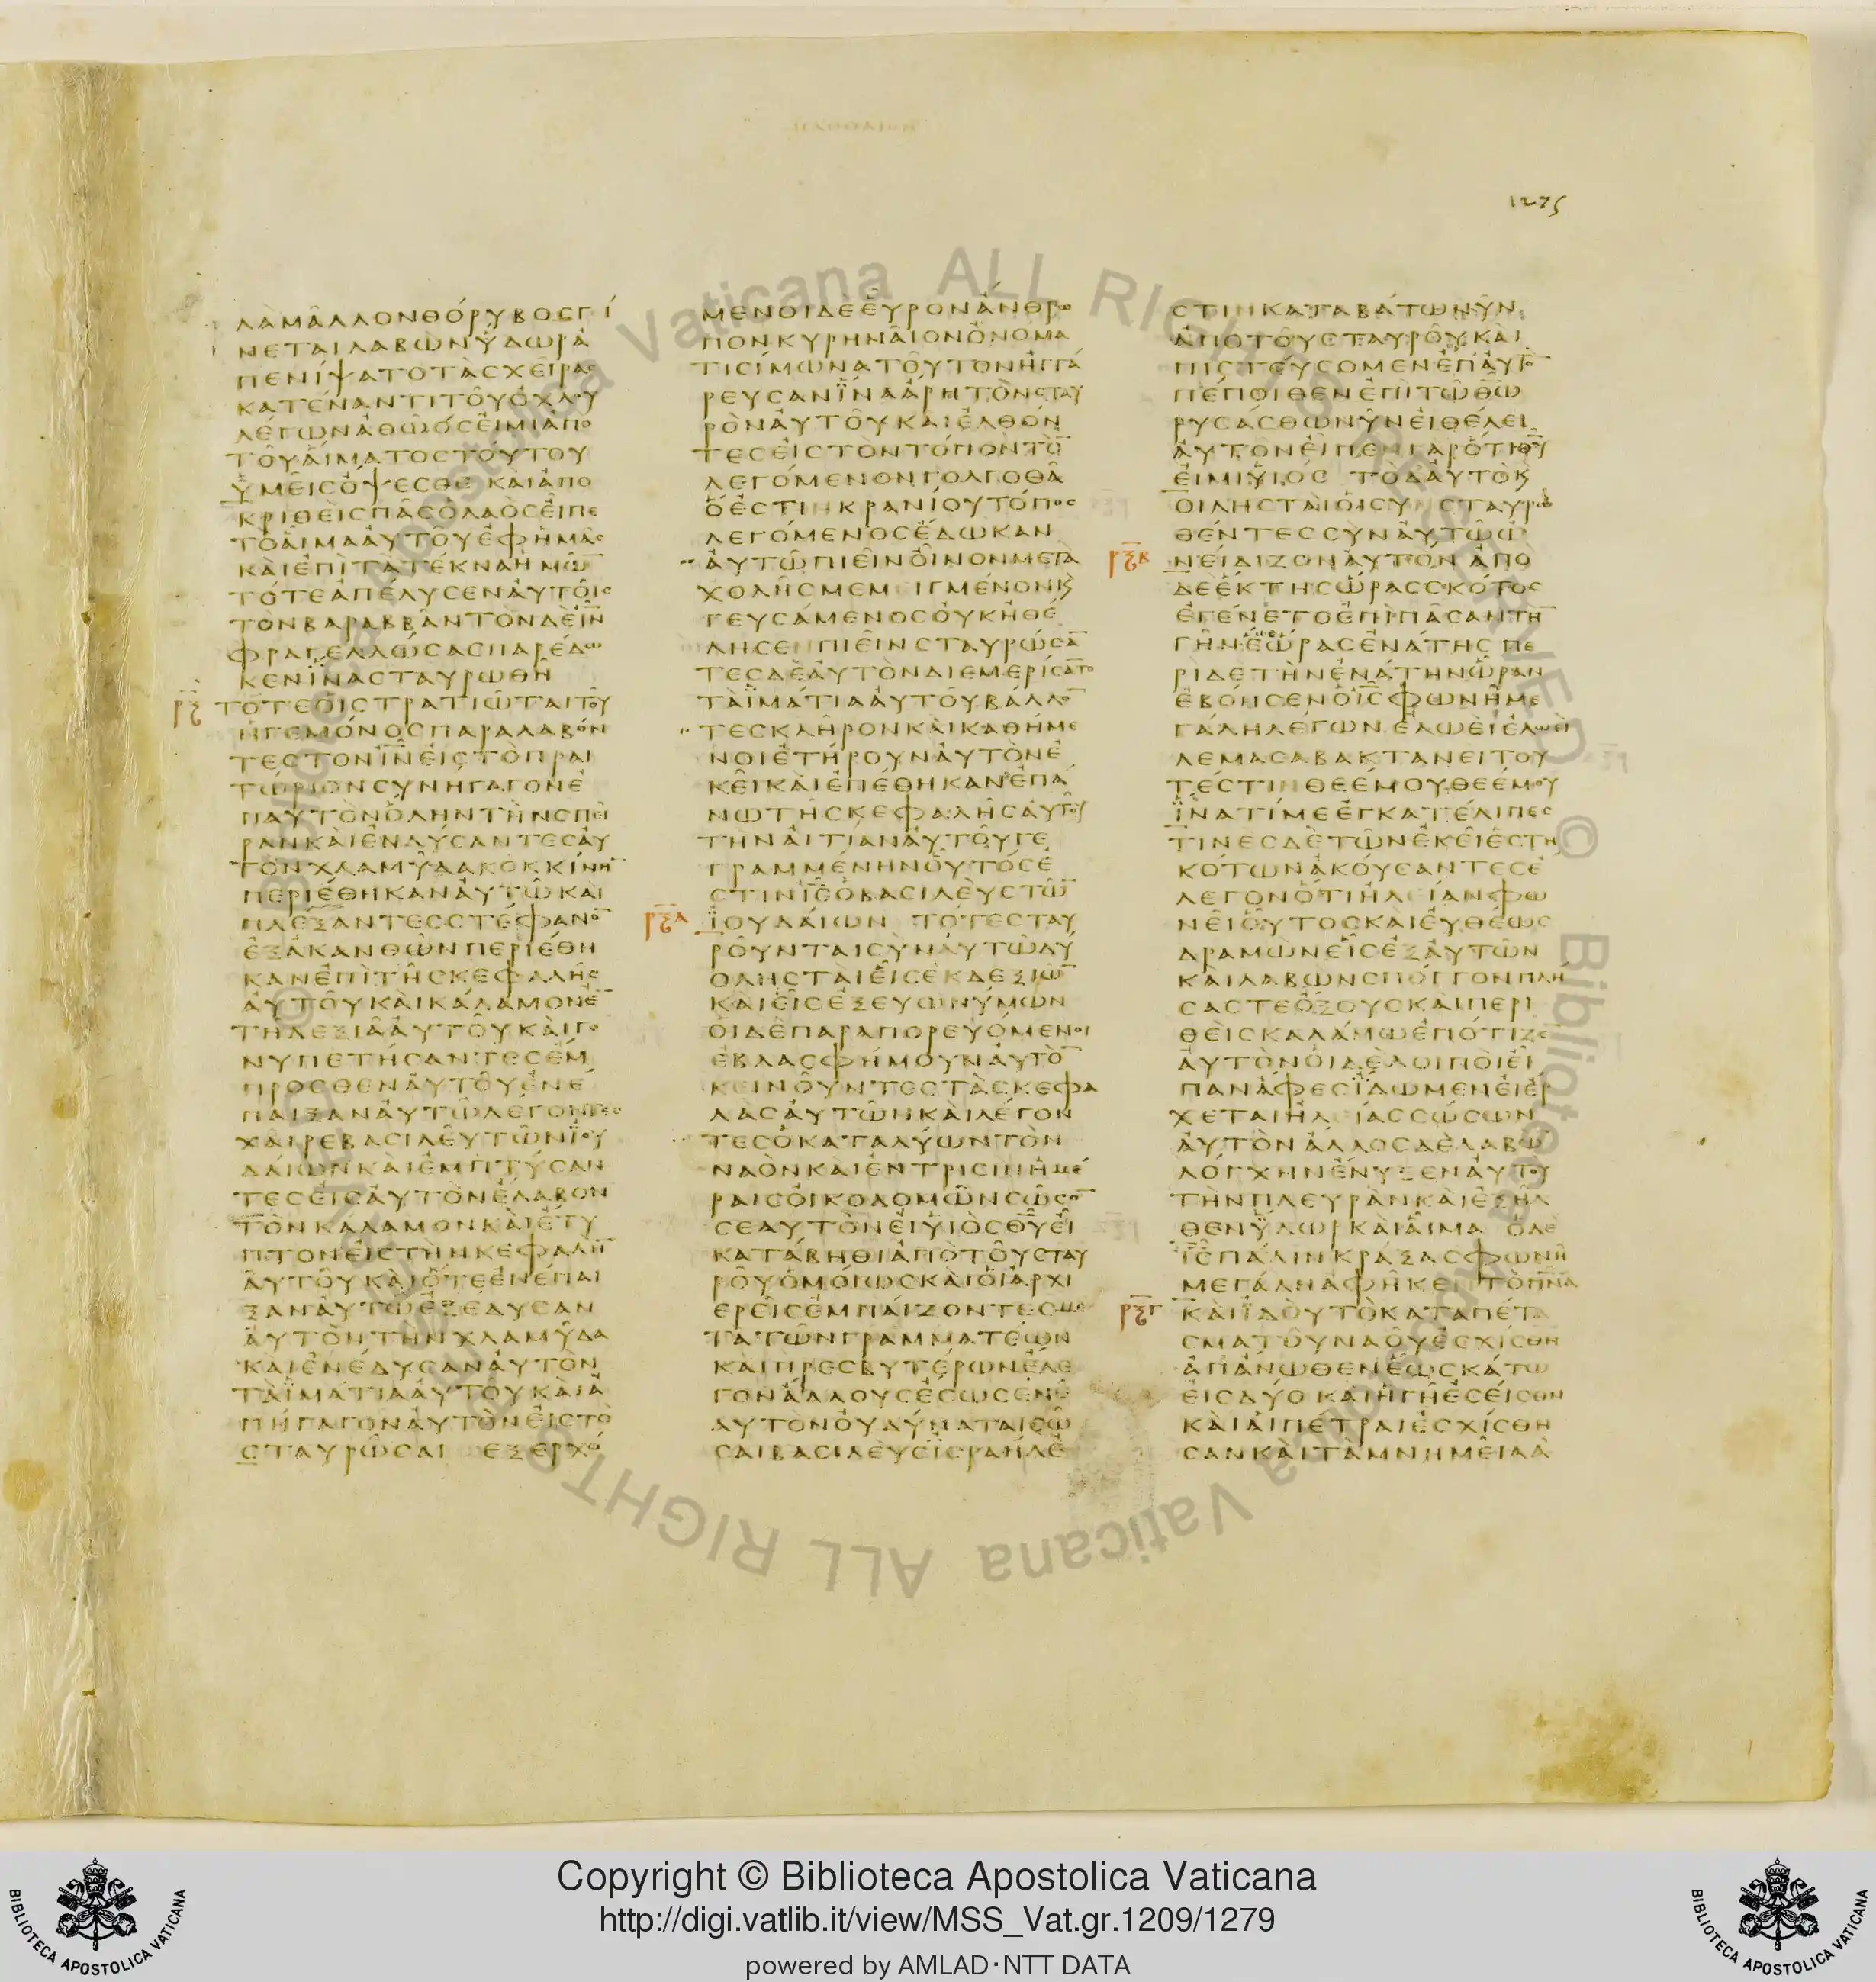 1275
ΛΑΜΑΛΛΟΝΘΟΡΥΒΟСΓΙ
ΝΕΤΑΙΛΑΒΩΝΥΔΩΡΑ
ΠΕΝΙΨΑΤΟΤΑСΧΕΙΡΑС
ΚΑΤΕΝΑΝΤΙΤΟΥΟΧΛΟΥ
ΛΕΓΩΝΑΘΩΟСΕΙΜΙΑΠΟ
ΤΟΥΑΙΜΑΤΟСΤΟΥΤΟΥ
ΥΜΕΙСΟΨΕСΘΕ ΚΑΙΑΠΟ
ΚΡΙΘΕΙСΠΑСΟΛΑΟСΕΙΠΕ
ΤΟΑΙΜΑΑΥΤΟΥΕΦΗΜΑС
ΚΑΙΕΠΙΤΑΤΕΚΝΑΗΜΩ̅
ΤΟΤΕΑΠΕΛΥСΕΝΑΥΤΟΙС
ΤΟΝΒΑΡΑΒΒΑΝΤΟΝΔΕΙ̅Ν̅
ΦΡΑΓΕΛΛΩСΑСΠΑΡΕΔΩ
ΚΕΝΪΝΑСΤΑΥΡΩΘΗ
ρϟ̅ ΤΟΤΕΟΙСΤΡΑΤΙΩΤΑΙΤΟΥ
ΗΓΕΜΟΝΟСΠΑΡΑΛΑΒΟΝ
ΤΕСΤΟΝΙ̅Ν̅ΕΙСΤΟΠΡΑΙ
ΤΩΡΙΟΝСΥΝΗΓΑΓΟΝΕ
ΠΑΥΤΟΝΟΛΗΝΤΗΝСΠΕΙ
ΡΑΝΚΑΙΕΝΔΥСΑΝΤΕСΑΥ
ΤΟΝΧΛΑΜΥΔΑΚΟΚΚΙΝΗ̅
ΠΕΡΙΕΘΗΚΑΝΑΥΤΩΚΑΙ
ΠΛΕΞΑΝΤΕССΤΕΦΑΝΟ̅
ΕΞΑΚΑΝΘΩΝΠΕΡΙΕΘΗ
ΚΑΝΕΠΙΤΗСΚΕΦΑΛΗС
ΑΥΤΟΥΚΑΙΚΑΛΑΜΟΝΕ̅
ΤΗΔΕΞΙΑΑΥΤΟΥΚΑΙΓΟ
ΝΥΠΕΤΗСΑΝΤΕСΕΜ
ΠΡΟСΘΕΝΑΥΤΟΥΕΝΕ
ΠΑΙΞΑΝΑΥΤΩΛΕΓΟΝΤΕС
ΧΑΙΡΕΒΑСΙΛΕΥΤΩΝΪΟΥ
ΔΑΙΩΝΚΑΙΕΜΠΤΥСΑΝ
ΤΕСΕΙСΑΥΤΟΝΕΛΑΒΟΝ
ΤΟΝΚΑΛΑΜΟΝΚΑΙΕΤΥ
ΠΤΟΝΕΙСΤΗΝΚΕΦΑΛΗ̅
ΑΥΤΟΥΚΑΙΟΤΕΕΝΕΠΑΙ
ΞΑΝΑΥΤΩΕΞΕΔΥСΑΝ
ΑΥΤΟΝΤΗΝΧΛΑΜΥΔΑ
ΚΑΙΕΝΕΔΥСΑΝΑΥΤΟΝ
ΤΑΪΜΑΤΙΑΑΥΤΟΥΚΑΙΑ
ΠΗΓΑΓΟΝΑΥΤΟΝΕΙСΤΟ
СΤΑΥΡΩСΑΙ ΕΞΕΡΧΟ
ΜΕΝΟΙΔΕΕΥΡΟΝΑΝΘΡΩ
ΠΟΝΚΥΡΗΝΑΙΟΝΟΝΟΜΑ
ΤΙСΙΜΩΝΑΤΟΥΤΟΝΗΓΓΑ
ΡΕΥСΑΝΪΝΑΑΡΗΤΟΝСΤΑΥ
ΡΟΝΑΥΤΟΥΚΑΙΕΛΘΟΝ
ΤΕСΕΙСΤΟΝΤΟΠΟΝΤΟ̅
ΛΕΓΟΜΕΝΟΝΓΟΛΓΟΘΑ
ΟΕСΤΙΝΚΡΑΝΙΟΥΤΟΠΟС
ΛΕΓΟΜΕΝΟСΕΔΩΚΑΝ
ΑΥΤΩΠΙΕΙΝΟΙΝΟΝΜΕΤΑ
ΧΟΛΗСΜΕΜΙΓΜΕΝΟΝΚ
ΓΕΥСΑΜΕΝΟСΟΥΚΗΘΕ
ΛΗСΕΝΠΙΕΙΝСΤΑΥΡΩСΑ̅
ΤΕСΔΕΑΥΤΟΝΔΙΕΜΕΡΙСΑ̅ΤΟ
ΤΑΪΜΑΤΙΑΑΥΤΟΥΒΑΛΛΟ̅
ΤΕСΚΛΗΡΟΝΚΑΙΚΑΘΗΜΕ
ΝΟΙΕΤΗΡΟΥΝΑΥΤΟΝΕ
ΚΕΙΚΑΙΕΠΕΘΗΚΑΝΕΠΑ
ΝΩΤΗСΚΕΦΑΛΗСΑΥΤΟΥ
ΤΗΝΑΙΤΙΑΝΑΥΤΟΥΓΕ
ΓΡΑΜΜΕΝΗΝΟΥΤΟСΕ
СΤΙΝΙ̅С̅ΟΒΑСΙΛΕΥСΤΩ̅
ρϟα̅ ΪΟΥΔΑΙΩΝ ΤΟΤΕСΤΑΥ
ΡΟΥΝΤΑΙСΥΝΑΥΤΩΔΥ
ΟΛΗСΤΑΙΕΙСΕΚΔΕΞΙΩ̅
ΚΑΙΕΙСΕΞΕΥΩΝΥΜΩΝ
ΟΙΔΕΠΑΡΑΠΟΡΕΥΟΜΕΝΟΙ
ΕΒΛΑСΦΗΜΟΥΝΑΥΤΟ̅
ΚΕΙΝΟΥΝΤΕСΤΑСΚΕΦΑ
ΛΑСΑΥΤΩΝΚΑΙΛΕΓΟΝ
ΤΕСΟΚΑΤΑΛΥΩΝΤΟΝ
ΝΑΟΝΚΑΙΕΝΤΡΙСΙΝΗΜΕ
ΡΑΙСΟΙΚΟΔΟΜΩΝСΩСΟ̅
СΕΑΥΤΟΝΕΙΥΙΟСΘ̅Υ̅ΕΙ
ΚΑΤΑΒΗΘΙΑΠΟΤΟΥСΤΑΥ
ΡΟΥΟΜΟΙΩСΚΑΙΟΙΑΡΧΙ
ΕΡΕΙСΕΜΠΑΙΖΟΝΤΕСΜΕ
ΤΑΤΩΝΓΡΑΜΜΑΤΕΩΝ
ΚΑΙΠΡΕСΒΥΤΕΡΩΝΕΛΕ
ΓΟΝΑΛΛΟΥСΕСΩСΕΝΕ
ΑΥΤΟΝΟΥΔΥΝΑΤΑΙСΩ
СΑΙΒΑСΙΛΕΥСΪСΡΑΗΛΕ
СΤΙΝΚΑΤΑΒΑΤΩΝΥΝ
ΑΠΟΤΟΥСΤΑΥΡΟΥΚΑΙ
ΠΙСΤΕΥСΟΜΕΝΕΠΑΥΤΟ̅
ΠΕΠΟΙΘΕΝΕΠΙΤΩΘ̅Ω̅
ΡΥСΑСΘΩΝΥΝΕΙΘΕΛΕΙ
ΑΥΤΟΝΕΙΠΕΝΓΑΡΟΤΙΘ̅Υ̅
ΕΙΜΙΥΙΟС ΤΟΔΑΥΤΟΚ
ΟΙΛΗСΤΑΙΟΙСΥΝСΤΑΥΡΩ
ΘΕΝΤΕССΥΝΑΥΤΩΩ
ρϟβ̅ ΝΕΙΔΙΖΟΝΑΥΤΟΝ ΑΠΟ
ΔΕΕΚΤΗСΩΡΑССΚΟΤΟС
ΕΓΕΝΕΤΟΕΠΙΠΑСΑΝΤΗ̅
ΓΗΝΕΩΡΑСΕΝΑΤΗС ΠΕ
ΡΙΔΕΤΗΝΕΝΑΤΗΝΩΡΑΝ
ΕΒΟΗСΕΝΟΙ̅С̅ΦΩΝΗΜΕ
ΓΑΛΗΛΕΓΩΝ ΕΛΩΕΙΕΛΩΕΙ
ΛΕΜΑСΑΒΑΚΤΑΝΕΙΤΟΥ
ΤΕСΤΙΝΘΕΕΜΟΥΘΕΕΜΟΥ
ΪΝΑΤΙΜΕΕΓΚΑΤΕΛΙΠΕС
ΤΙΝΕСΔΕΤΩΝΕΚΕΙΕСΤΗ
ΚΟΤΩΝΑΚΟΥСΑΝΤΕСΕ
ΛΕΓΟΝΟΤΙΗΛΕΙΑΝΦΩ
ΝΕΙΟΥΤΟСΚΑΙΕΥΘΕΩС
ΔΡΑΜΩΝΕΙСΕΞΑΥΤΩΝ
ΚΑΙΛΑΒΩΝСΠΟΓΓΟΝΠΛΗ
СΑСΤΕΟΞΟΥСΚΑΙΠΕΡΙ
ΘΕΙСΚΑΛΑΜΩΕΠΟΤΙΖΕ̅
ΑΥΤΟΝΟΙΔΕΛΟΙΠΟΙΕΙ
ΠΑΝΑΦΕСΪΔΩΜΕΝΕΙΕΡ
ΧΕΤΑΙΗΛΕΙΑССΩСΩΝ
ΑΥΤΟΝΑΛΛΟСΔΕΛΑΒΩ
ΛΟΓΧΗΝΕΝΥΞΕΝΑΥΤΟΥ
ΤΗΝΠΛΕΥΡΑΝΚΑΙΕΞΗΛ
ΘΕΝΫΔΩΡΚΑΙΑΙΜΑ ΟΔΕ
Ι̅С̅ΠΑΛΙΝΚΡΑΞΑСΦΩΝΗ
ΜΕΓΑΛΗΑΦΗΚΕΝΤΟΠ̅Ν̅Α̅
ρϟγ̅ ΚΑΙΪΔΟΥΤΟΚΑΤΑΠΕΤΑ
СΜΑΤΟΥΝΑΟΥΕСΧΙСΘΗ
ΑΠΑΝΩΘΕΝΕΩСΚΑΤΩ
ΕΙСΔΥΟ ΚΑΙΗΓΗΕСΕΙСΘΗ
ΚΑΙΑΙΠΕΤΡΑΙΕСΧΙСΘΗ
СΑΝΚΑΙΤΑΜΝΗΜΕΙΑΑ
Vaticana ALL RIGHTS RESERVED © Biblioteca Apostolica Vaticana ALL RIGHTS RESERVED © Biblioteca Apostolica
Copyright © Biblioteca Apostolica Vaticana
http://digi.vatlib.it/view/MSS_Vat.gr.1209/1279
powered by AMLAD·NTT DATA
BIBLIOTECA APOSTOLICA VATICANA
BIBLIOTECA APOSTOLICA VATICANA